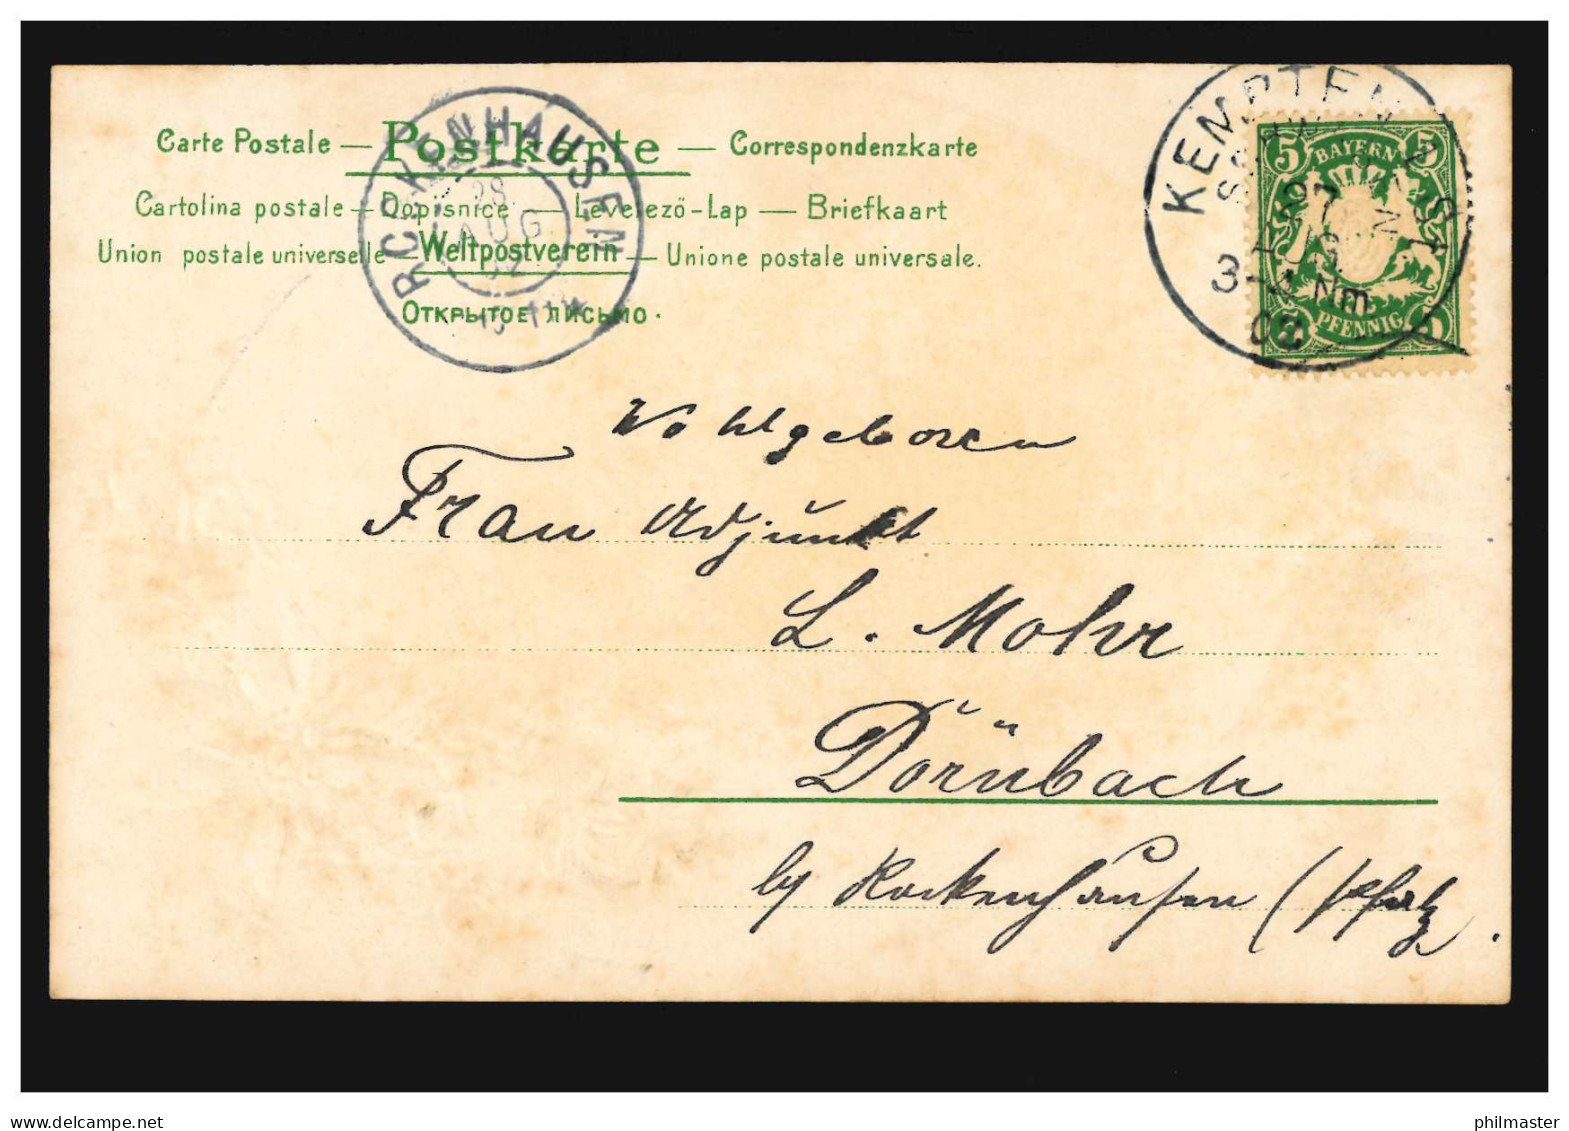 Carte Postale — Postkarte — Correspondenzkarte
Cartolina postale — Dopisnice — Levelező-Lap — Briefkaart
Union postale universelle — Weltpostverein — Unione postale universale.
Открытое письмо.
ROCKENHAUSEN
28
AUG
02
KEMPTEN
27
AUG
3-4 Nm
02
5 BAYERN 5
PFENNIG
Wohlgeboren
Frau Adjunkt
L. Mohr
Dörnbach
by Rockenhausen (Pfalz.
www.delcampe.net
philmaster